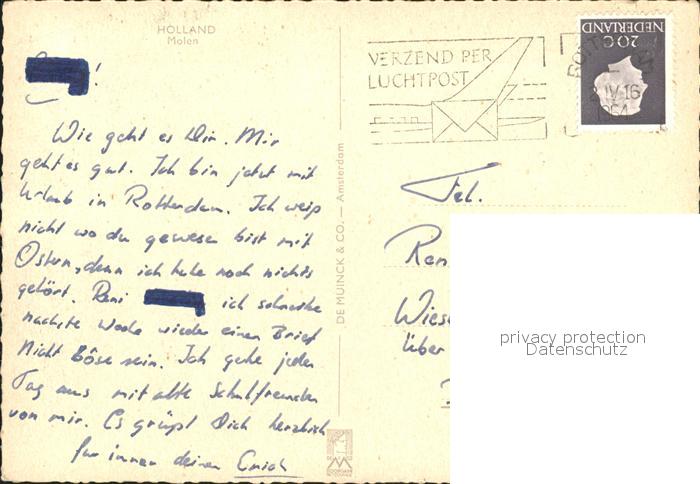 HOLLAND
Molen
!
Wie geht es Dir. Mir
geht es gut. Ich bin jetzt mit
Urlaub in Rotterdam. Ich weiß
nicht wo du gewesen bist mit
Ostern, denn ich habe noch nichts
gehört. Reni ich schreibe
nächste Woche wieder einen Brief
Nicht Böse sein. Ich gehe jeden
Tag aus mit alte Schulfreunden
von mir. Es grüßt Dich herzlich
für immer deinen
DE MUINCK & CO. — Amsterdam
VERZEND PER
LUCHTPOST
NEDERLAND
20 C
IV-16
1964
Frl.
Ren
Wies
über
privacy protection
Datenschutz